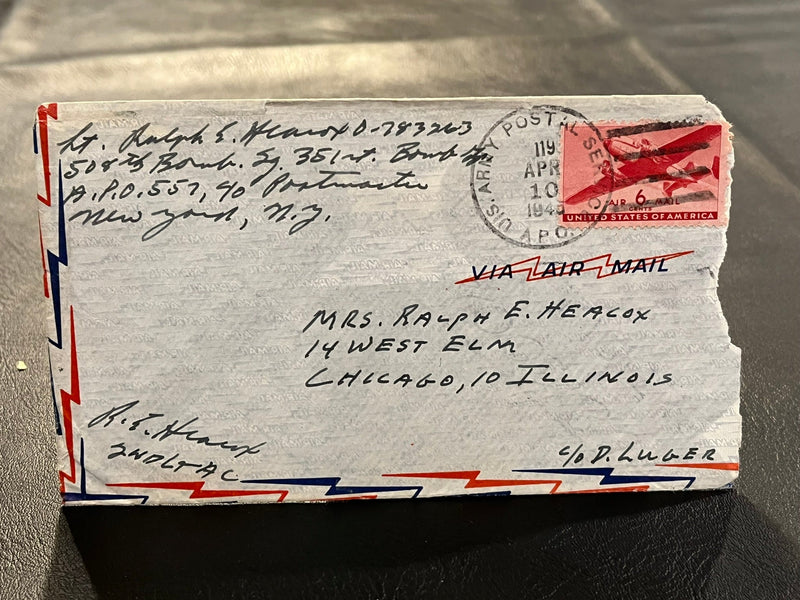 Lt. Ralph E. Heacox O-783263
508th Bomb. Sq. 351st. Bomb Gp
A.P.O. 557, c/o Postmaster
New York, N.Y.
U.S. ARMY POSTAL SERVICE
119
APR
10
1945
A.P.O.
AIR 6 MAIL
CENTS
UNITED STATES OF AMERICA
VIA AIR MAIL
MRS. RALPH E. HEACOX
14 WEST ELM
CHICAGO, 10 ILLINOIS
R. E. Heacox
2ND LT AC
c/o D. LUGER